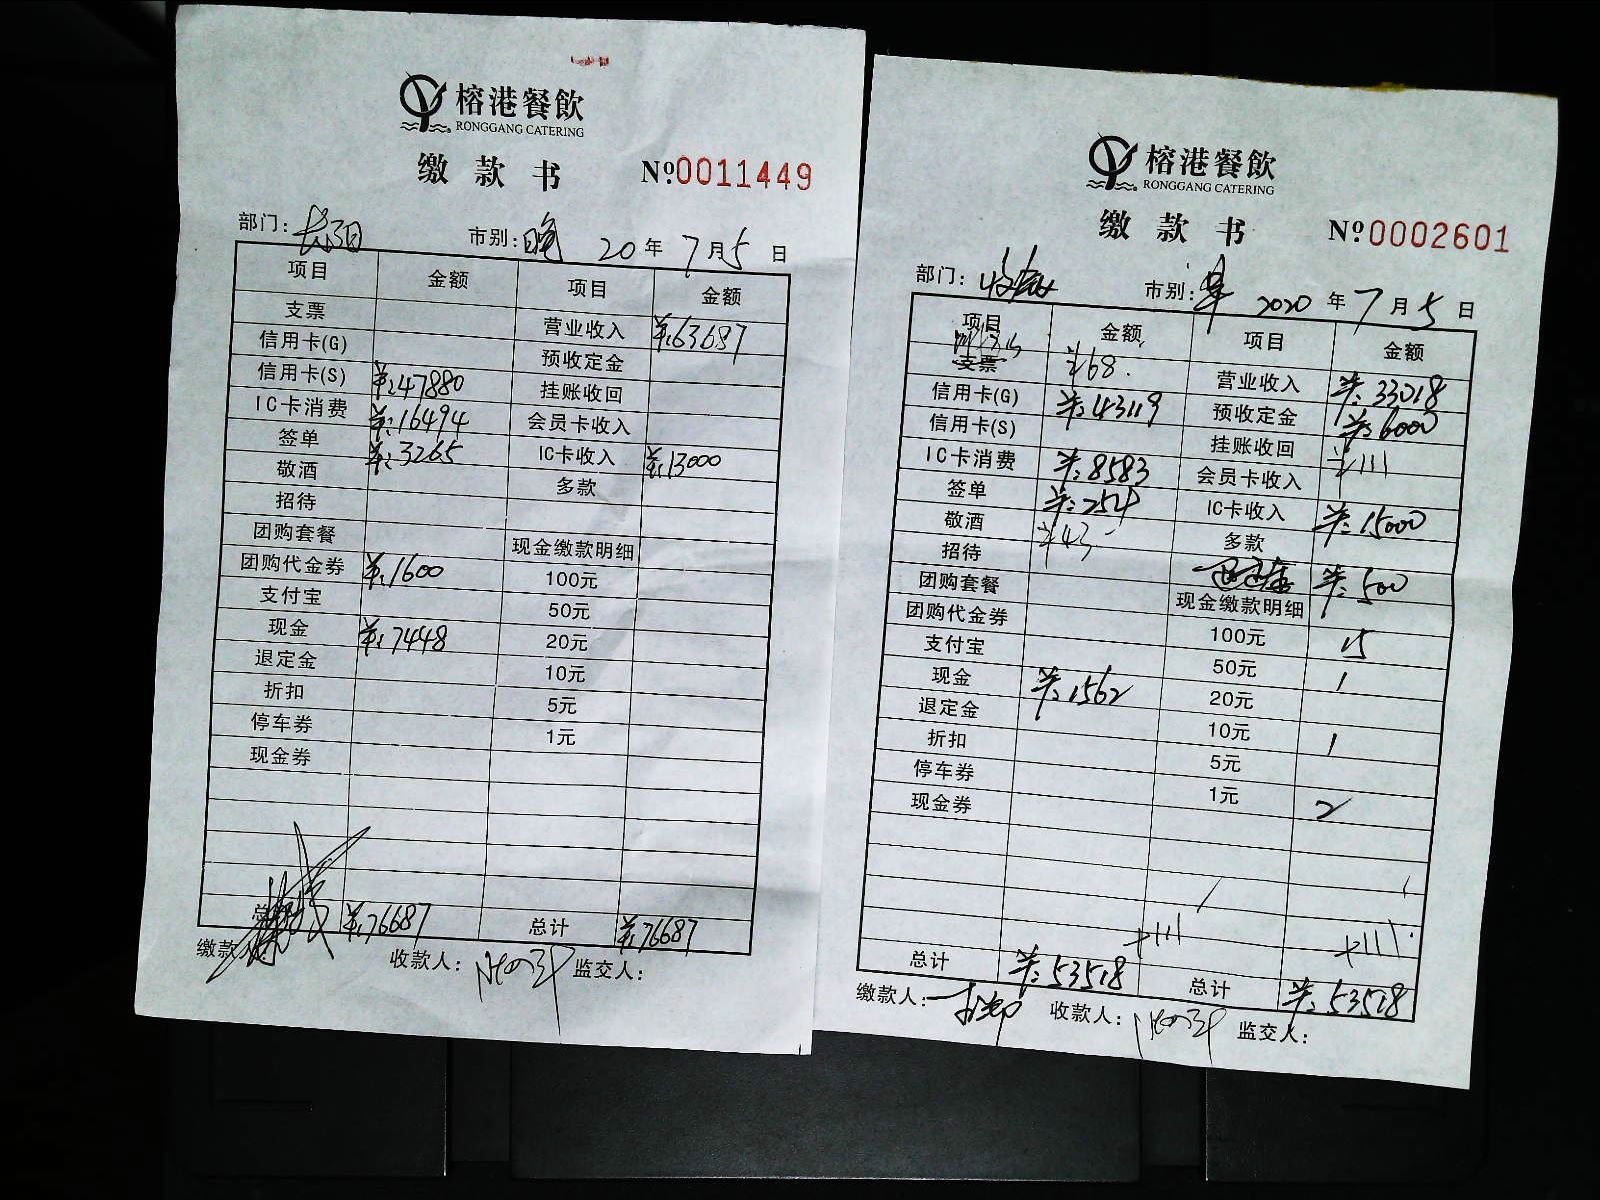 榕港餐飲
RONGGANG CATERING
缴 款 书 №0011449
部门: 市别:晚 20 年 7 月 5 日
项目 金额 项目 金额
支票 营业收入 ¥:63687
信用卡(G) 预收定金
信用卡(S) ¥:47880 挂账收回
IC卡消费 ¥:16494 会员卡收入
签单 ¥:3265 IC卡收入 ¥:13000
敬酒 多款
招待
团购套餐 现金缴款明细
团购代金券 ¥:1600 100元
支付宝 50元
现金 ¥:7448 20元
退定金 10元
折扣 5元
停车券 1元
现金券
总 ¥:76687 总计 ¥:76687
缴款 收款人: 监交人:
榕港餐飲
RONGGANG CATERING
缴 款 书 №0002601
部门: 市别: 2020 年 7 月 5 日
项目 金额 项目 金额
支票 ¥68. 营业收入 ¥:33018
信用卡(G) ¥:43119 预收定金 ¥:6000
信用卡(S) 挂账收回 ¥111
IC卡消费 ¥:8583 会员卡收入
签单 ¥:254 IC卡收入 ¥:15000
敬酒 ¥43- 多款
招待 ¥:500
团购套餐 现金缴款明细
团购代金券 100元 15
支付宝 50元 1
现金 ¥:1562 20元
退定金 10元 1
折扣 5元
停车券 1元 2
现金券
+111 +111.
总计 ¥:53518 总计 ¥:53518
缴款人: 收款人: 监交人: